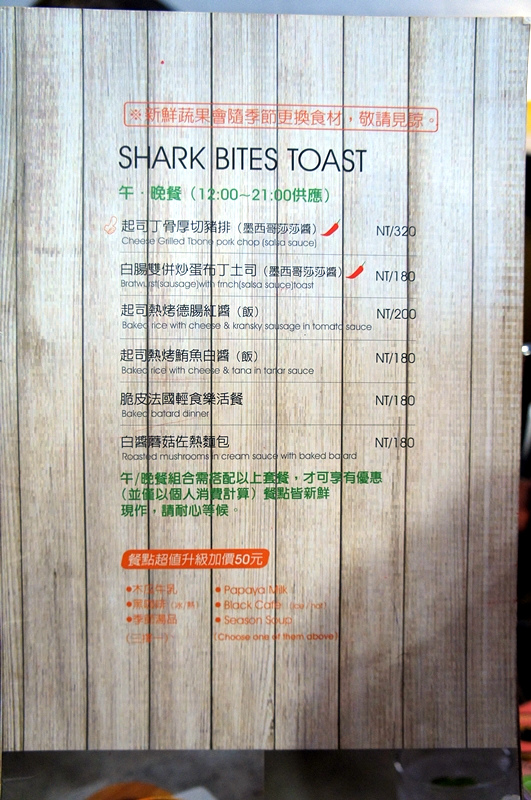 ※新鮮蔬果會隨季節更換食材，敬請見諒。
SHARK BITES TOAST
午．晚餐（12:00~21:00供應）
起司丁骨厚切豬排（墨西哥莎莎醬） NT/320
Cheese Grilled Tbone pork chop (salsa sauce)
白腸雙併炒蛋布丁土司（墨西哥莎莎醬） NT/180
Bratwurst(sausage)with frnch(salsa sauce)toast
起司熱烤德腸紅醬（飯） NT/200
Baked rice with cheese & kransky sausage in tomato sauce
起司熱烤鮪魚白醬（飯） NT/180
Baked rice with cheese & tana in tartar sauce
脆皮法國輕食樂活餐 NT/180
Baked batard dinner
白醬蘑菇佐熱麵包 NT/180
Roasted mushrooms in cream sauce with baked batard
午/晚餐組合需搭配以上套餐，才可享有優惠
（並僅以個人消費計算）餐點皆新鮮
現作，請耐心等候。
餐點超值升級加價50元
●木瓜牛乳 ●Papaya Milk
●黑咖啡（冰/熱） ●Black Cafe（ice/hot）
●季節湯品 ●Season Soup
（三擇一） (Choose one of them above)